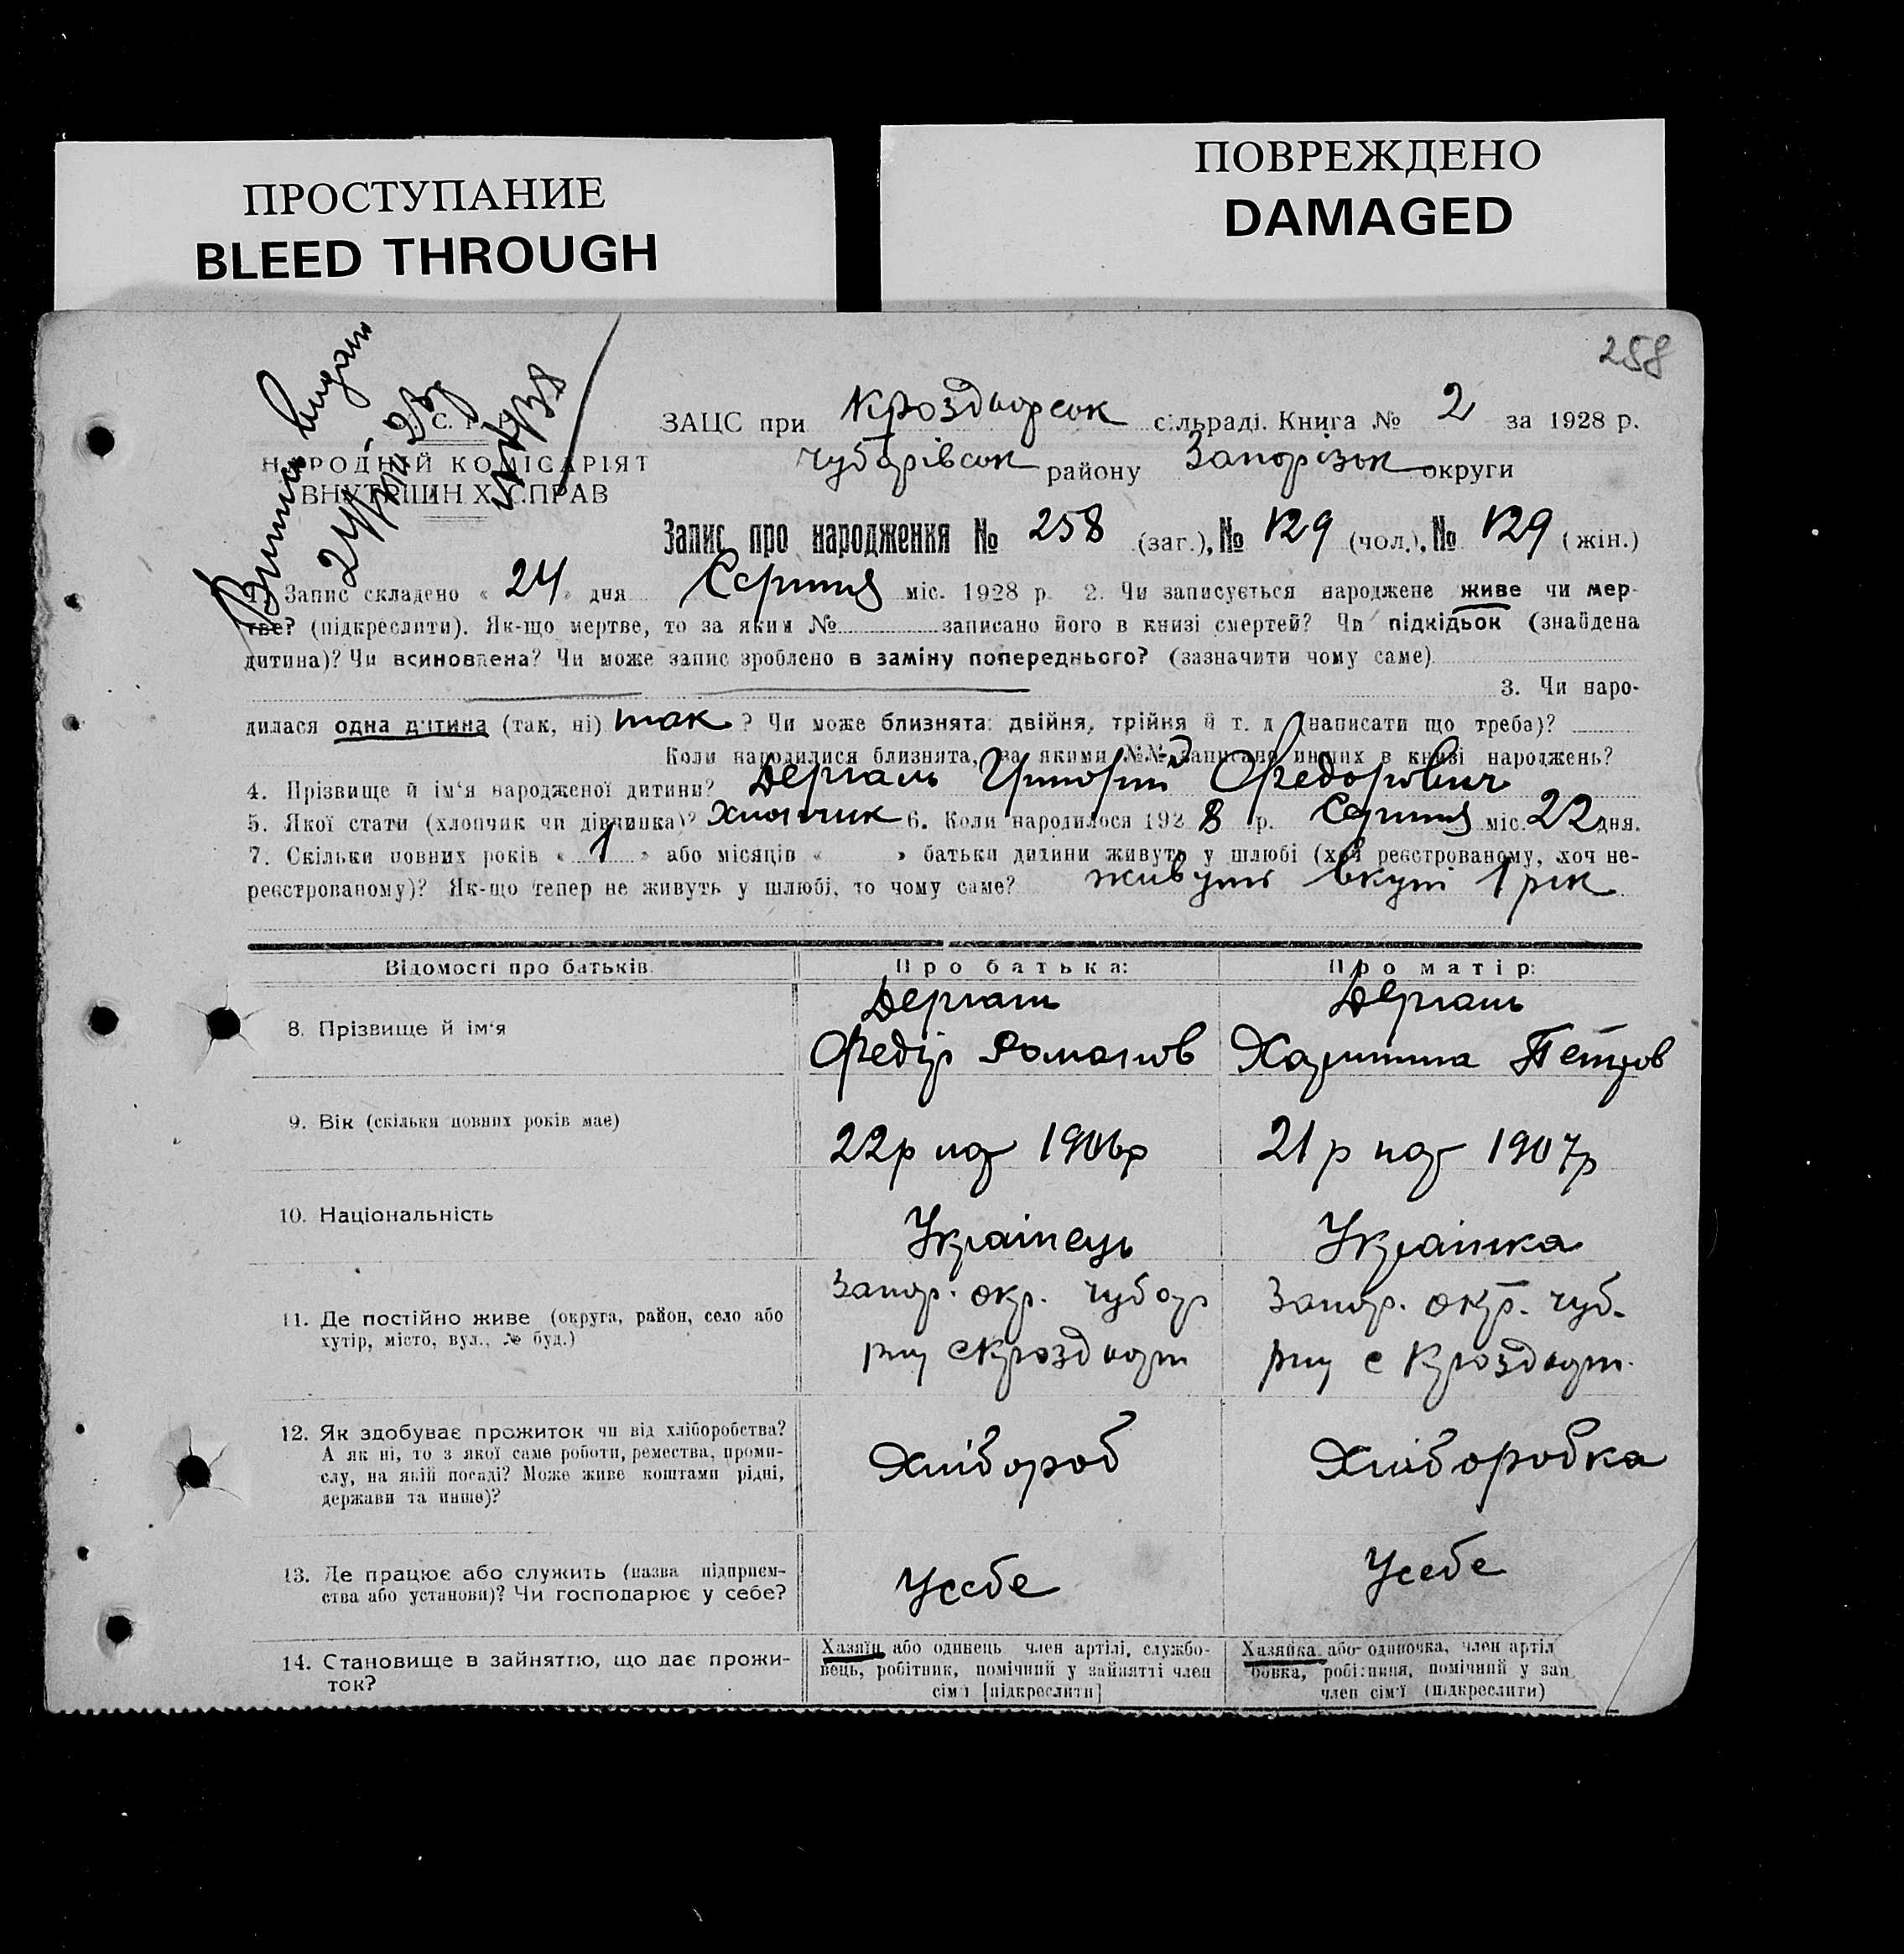 ПРОСТУПАНИЕ
BLEED THROUGH
ПОВРЕЖДЕНО
DAMAGED
258
НАРОДНИЙ КОМІСАРІЯТ
ВНУТРІШНІХ СПРАВ
ЗАЦС при Кроздворськ сільраді. Книга № 2 за 1928 р.
Чубарівськ району Запорізьк округи
Запис про народження № 258 (заг.), № 129 (чол.), № 129 (жін.)
Запис складено « 24 » дня Серпня міс. 1928 р. 2. Чи записується народжене живе чи мер-
тве? (підкреслити). Як-що мертве, то за яким № записано його в книзі смертей? Чи підкідьок (знайдена
дитина)? Чи всиновлена? Чи може запис зроблено в заміну попереднього? (зазначити чому саме)
3. Чи наро-
дилася одна дитина (так, ні) так ? Чи може близнята: двійня, трійня й т. д. (написати що треба)?
Коли народилися близнята, за якими №№ записано инших в книзі народжень?
4. Прізвище й ім'я народженої дитини? Дергаль Григорій Федорович
5. Якої стати (хлопчик чи дівчинка)? Хлопчик 6. Коли народилося 1928 р. Серпня міс. 22 дня.
7. Скільки повних років « 1 » або місяців « » батьки дитини живуть у шлюбі (хоч реєстрованому, хоч не-
реєстрованому)? Як-що тепер не живуть у шлюбі, то чому саме? живуть вкупі 1 рік
Відомості про батьків. Про батька: Про матір:
8. Прізвище й ім'я Дергаль Федір Романов Дергаль Харитина Петров
9. Вік (скільки повних років має) 22 р нар 1906 р 21 р нар 1907 р
10. Національність Українець Українка
11. Де постійно живе (округа, район, село або Запор. окр. Чубар Запор. окр. Чуб.
хутір, місто, вул., № буд.) рну с Кроздвор рну с Кроздвор
12. Як здобуває прожиток чи від хліборобства? Хлібороб Хліборобка
А як ні, то з якої саме роботи, ремества, проми-
слу, на якій посаді? Може живе коштами рідні,
держави та инше)?
13. Де працює або служить (назва підприєм- Усебе Усебе
ства або установи)? Чи господарює у себе?
14. Становище в зайняттю, що дає прожи-
ток?
Хазяїн або одинець член артілі, службо-
вець, робітник, помічний у зайнятті член
сім'ї [підкреслити]
Хазяйка або одиночка, член артіл
бовка, робітниця, помічний у зай
член сім'ї (підкреслити)